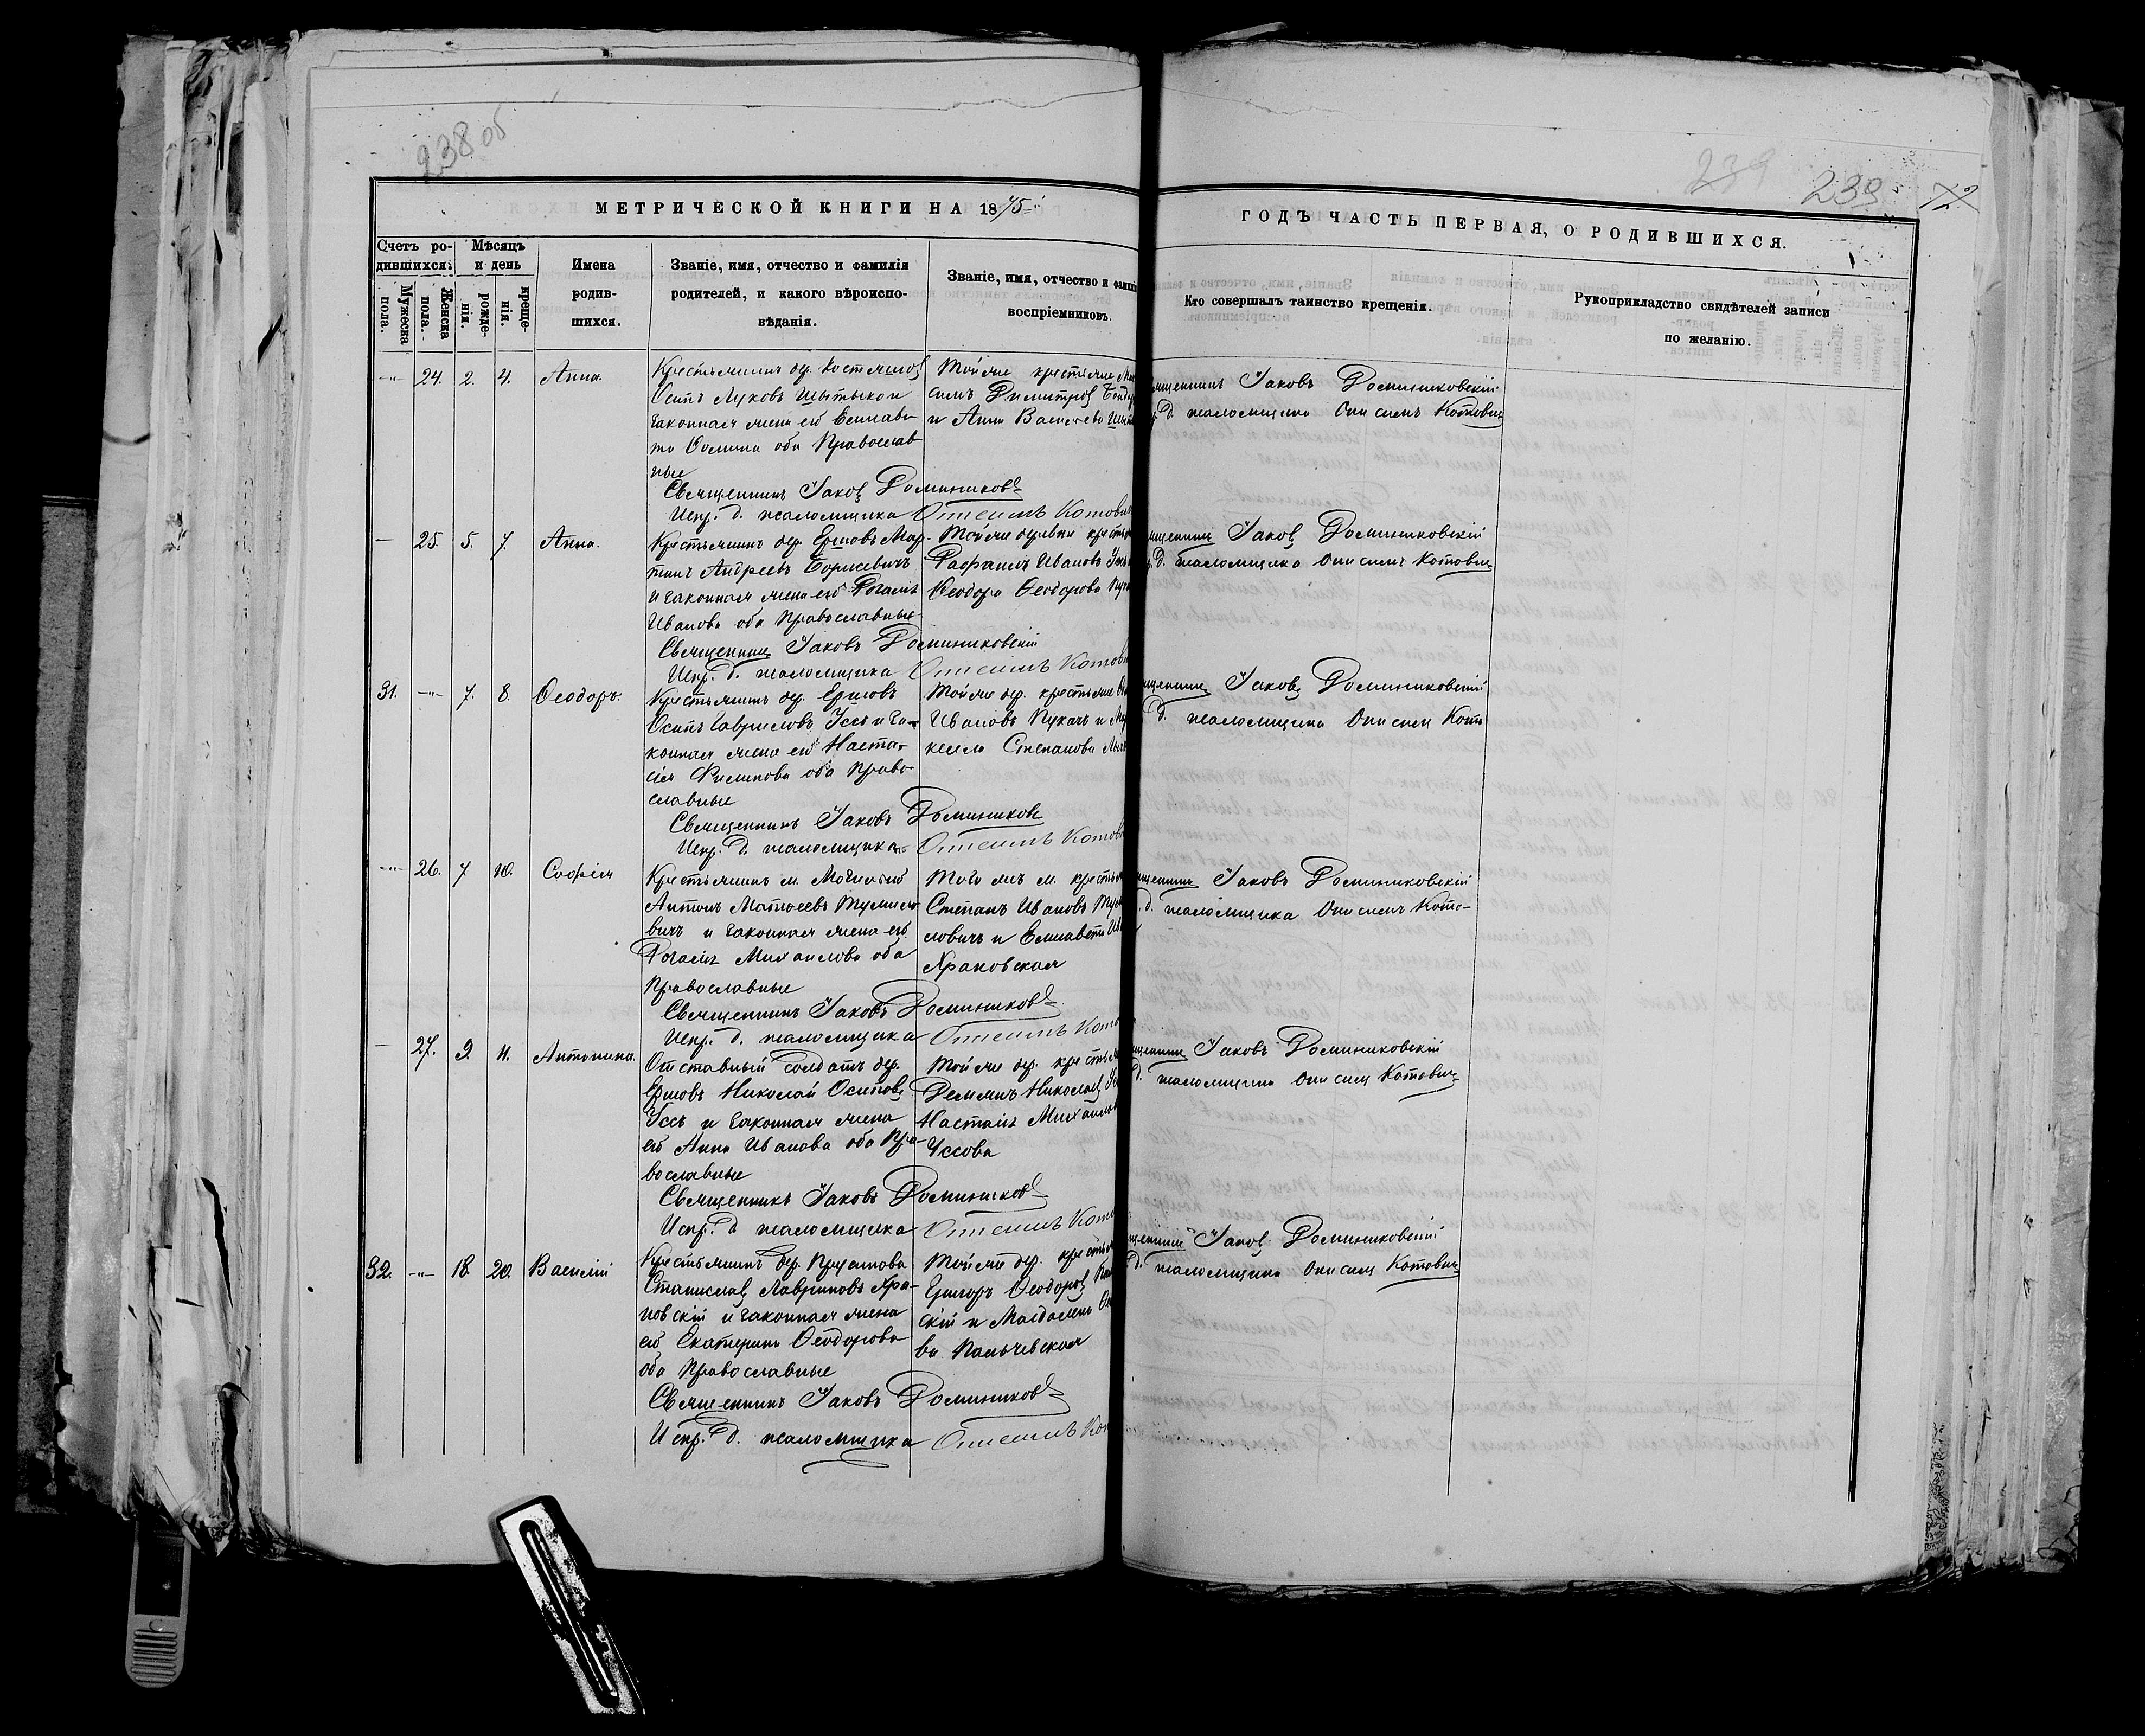 238 об
239
239
72
МЕТРИЧЕСКОЙ КНИГИ НА 1875
ГОДЪ ЧАСТЬ ПЕРВАЯ, О РОДИВШИХСЯ.
Счетъ ро-
дившихся.
Мужеска
пола.
Женска
пола.
Мѣсяцъ
и день
рожде-
нія.
креще-
нія.
Имена
родив-
шихся.
Званіе, имя, отчество и фамилія
родителей, и какого вѣроиспо-
вѣданія.
Званіе, имя, отчество и фамилі
воспріемниковъ.
Кто совершалъ таинство крещенія.
Рукоприкладство свидѣтелей записи
по желанію.
-"- 24. 2. 4. Анна.
Крестьянинъ дер.
Осипъ Луковъ Шытыко и
законная жена его Елисаве-
та Фомина оба Православ
ные
Священникъ Іаковъ Домиников
Испр. д. псаломщика Онисимъ Котови
Той же крестьяне
симъ Димитровъ
и Анна Васильева
щенникъ Іаковъ Доминиковскій
Д. псаломщика Онисимъ Котович
— 25. 5. 7. Анна.
Крестьянинъ дер. Ершовъ Мар-
тинъ Андреевъ Борисевичъ
и законная жена его Розалія
Иванова оба Православные
Священник Іаковъ Доминиковскій
Испр. д. псаломщика Онисимъ Котови
Той же деревни крестья
Рафаилъ Ивановъ
Феодора Феодорова
щенник Іаковъ Доминиковскій
Д. псаломщика Онисимъ Котович
31. -"- 7. 8. Феодоръ.
Крестьянинъ дер. Ершовъ
Осипъ Гавриловъ Уссъ и за-
конная жена его Настас-
сія Филипова оба Право-
славные
Священникъ Іаковъ Домиников
Испр. д. псаломщика Онисимъ Котови
Той же дер. крестьяне
Ивановъ Пукачъ и
Степанова
щенник Іаковъ Доминиковскій
д. псаломщика Онисим Кото
-"- 26. 7 10. Софія
Крестьянинъ м.
Антонъ Матвеевъ Тумило-
вичъ и законная жена его
Розалія Михаилова оба
Православные
Священникъ Іаковъ Домиников
Испр. д. псаломщика Онисимъ Кото
Того жъ м. крестья
Степанъ Ивановъ Туми
ловичъ и Елисавета
Храновская
щенникъ Іаковъ Доминиковскій
д. псаломщика Онисимъ Кото-
— 27. 9. 11. Антонина.
Отставный солдатъ дер.
Ершовъ Николай Осиповъ
Уссъ и законная жена
его Анна Иванова оба Пра-
вославные
Священникъ Іаковъ Домиников
Испр. д псаломщика Онисимъ Кот
Той же дер. крестья
Николаевъ
Настасія Михаилов
Уссова
щенник Іаковъ Доминиковскій
д. псаломщика Онисим Котович
32. -"- 18. 20. Василій
Крестьянинъ дер.
Станиславъ Лавриновъ Хра-
новскій и законная жена
его Екатерина Феодорова
оба Православные
Священникъ Іаковъ Домиников
Испр. д. псаломщика Онисимъ Кот
Той же дер. крестья
Григоръ Феодоровъ
скій и Магдалена
ва Пальчевская
щенник Іаковъ Доминиковскій
д. псаломщика Онисим Котович